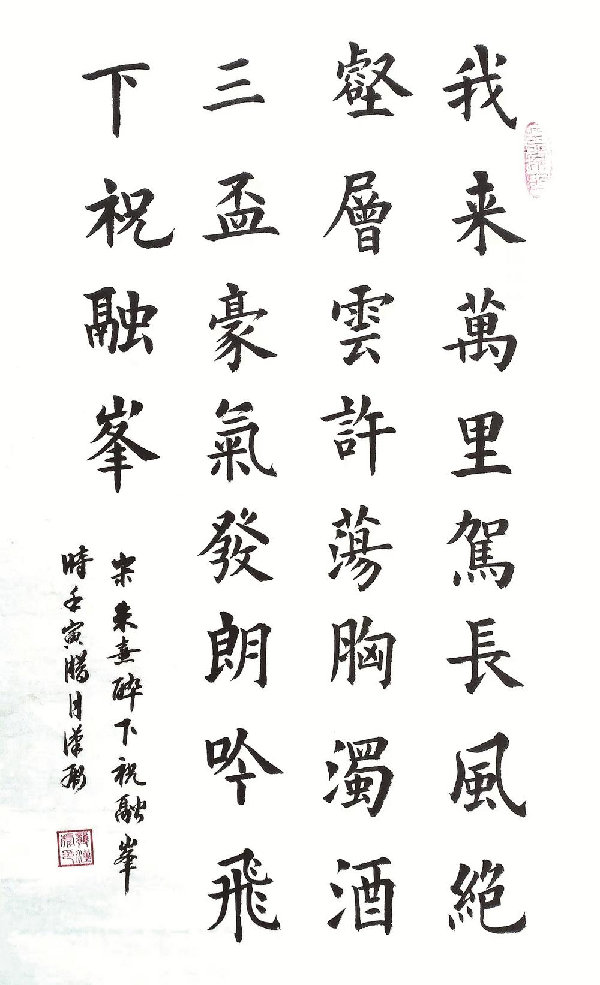 我来萬里駕長風絶
壑層雲許蕩胸濁酒
三盃豪氣發朗吟飛
下祝融峯
宋朱熹醉下祝融峯
時壬寅腊月漢